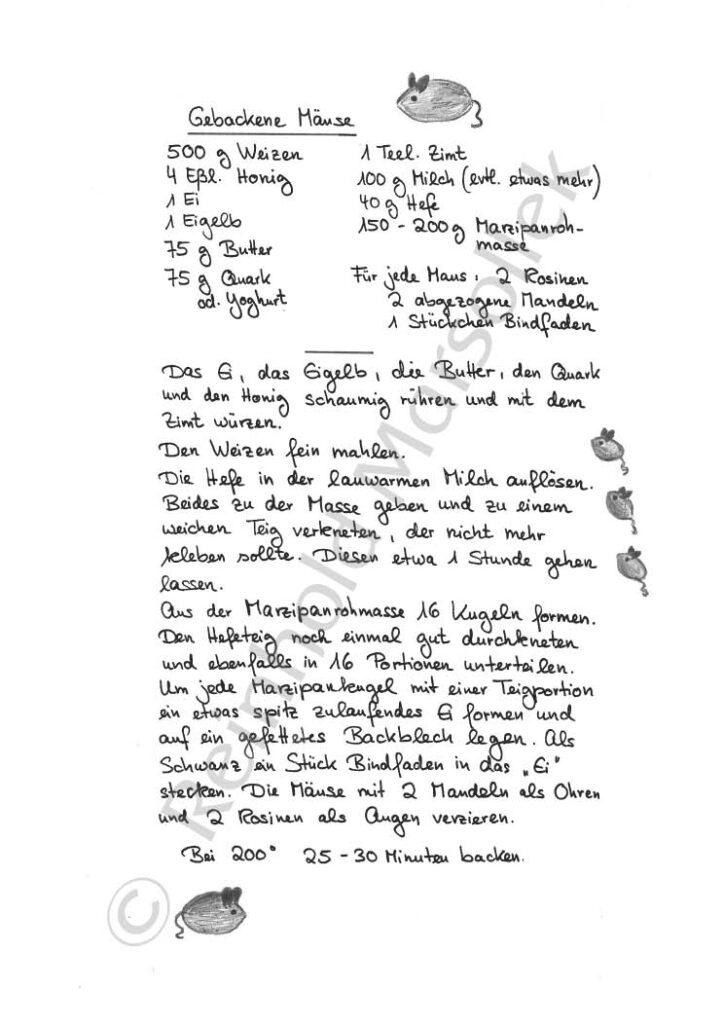 Gebackene Mäuse
500 g Weizen
4 Eßl. Honig
1 Ei
1 Eigelb
75 g Butter
75 g Quark
od. Yoghurt
1 Teel. Zimt
100 g Milch (evtl. etwas mehr)
40 g Hefe
150 - 200 g Marzipanroh-
masse
Für jede Maus: 2 Rosinen
2 abgezogene Mandeln
1 Stückchen Bindfaden
Das Ei, das Eigelb, die Butter, den Quark
und den Honig schaumig rühren und mit dem
Zimt würzen.
Den Weizen fein mahlen.
Die Hefe in der lauwarmen Milch auflösen.
Beides zu der Masse geben und zu einem
weichen Teig verkneten, der nicht mehr
kleben sollte. Diesen etwa 1 Stunde gehen
lassen.
Aus der Marzipanrohmasse 16 Kugeln formen.
Den Hefeteig noch einmal gut durchkneten
und ebenfalls in 16 Portionen unterteilen.
Um jede Marzipankugel mit einer Teigportion
ein etwas spitz zulaufendes Ei formen und
auf ein gefettetes Backblech legen. Als
Schwanz ein Stück Bindfaden in das „Ei"
stecken. Die Mäuse mit 2 Mandeln als Ohren
und 2 Rosinen als Augen verzieren.
Bei 200° 25 - 30 Minuten backen.
© Reinhold Marsollek